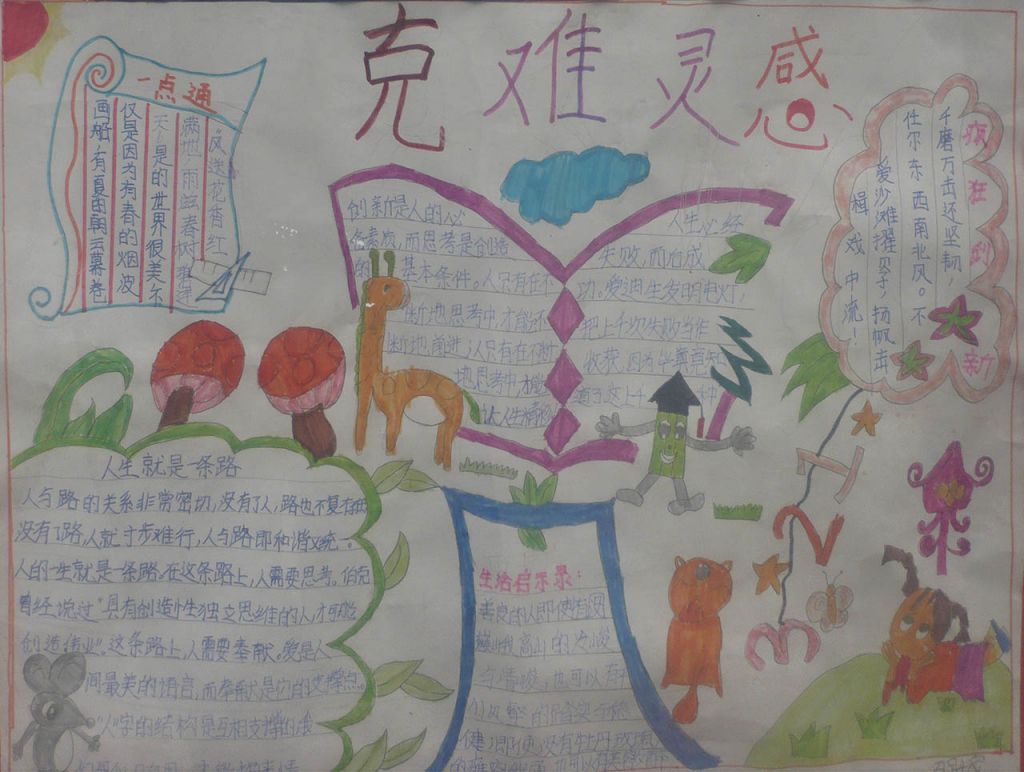 克难灵感
一点通
"风送花香红
满地,雨滋春树
天"是的世界很美不
仅是因为有春的烟波
画船,有夏的朝云暮卷
创新是人的必
备素质,而思考是创造
的基本条件。人只有在不
断地思考中,才能不
断地前进,人只有在不断
地思考中,才能
让人生
人生必经
失败,而后成
功。爱迪生发明电灯,
把上千次失败当作
收获,因为
疯狂创新
千磨万击还坚韧,
任尔东西南北风。不
爱沙滩擢贝子,扬帆击
楫戏中流!
人生就是一条路
人与路的关系非常密切,没有了人,路也不复存在
没有了路,人就寸步难行,人与路即和谐又统一。
人的一生就是一条路。在这条路上,人需要思考。伯克
曾经说过"具有创造性独立思维的人才可能
创造伟业"。这条路上,人需要奉献。爱是人
间最美的语言,而奉献是它的支撑点。
"人"字的结构是互相支撑的
生活启示录:
善良的人即使没有
高山的
也可以有
健,即使没有牡丹
1
2
3